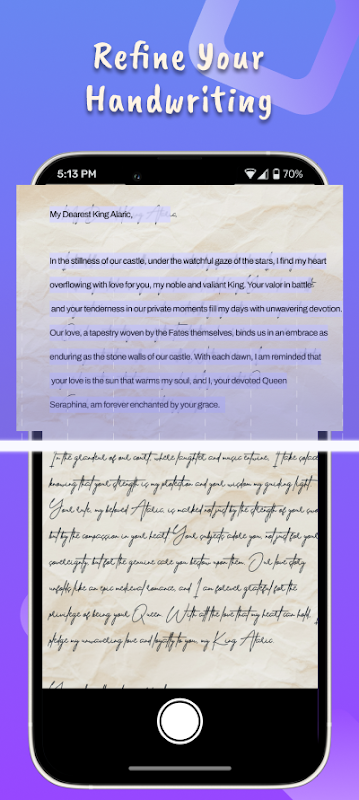 Refine Your
Handwriting
5:13 PM
70%
My Dearest King Alaric,
In the stillness of our castle, under the watchful gaze of the stars, I find my heart
overflowing with love for you, my noble and valiant King. Your valor in battle
and your tenderness in our private moments fill my days with unwavering devotion.
Our love, a tapestry woven by the Fates themselves, binds us in an embrace as
enduring as the stone walls of our castle. With each dawn, I am reminded that
your love is the sun that warms my soul, and I, your devoted Queen
Seraphina, am forever enchanted by your grace.
In the grandeur of our court, where laughter and music entwine, I take solace
knowing that your strength is my protection and your wisdom my guiding light.
Your rule, my beloved Alaric, is marked not just by the strength of your
but by the compassion in your heart. Your subjects adore you, not just for your
sovereignty, but for the genuine care you bestow upon them. Our love story
unfolds like an epic medieval romance, and I am forever grateful for the
privilege of being your Queen. With all the love that my heart can hold, I
pledge my unwavering love and loyalty to you, my King Alaric.